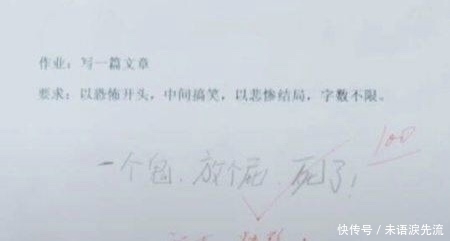 作业：写一篇文章
要求：以恐怖开头，中间搞笑，以悲惨结局，字数不限。
一个鬼，放个屁，死了！
100
快传号 / 未语淚先流